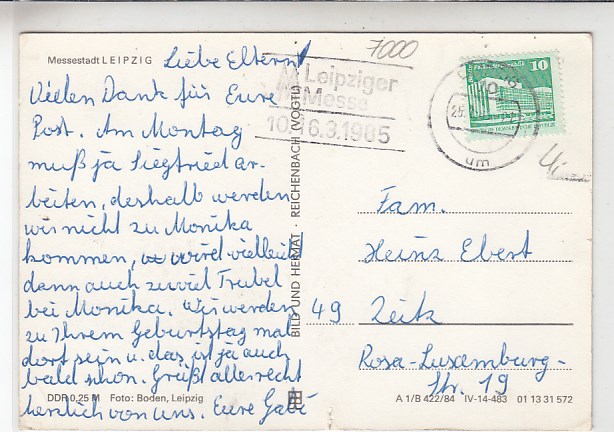 Messestadt LEIPZIG
Liebe Eltern!
Vielen Dank für Eure
Post. Am Montag
muß ja Siegfried ar-
beiten, deshalb werden
wir nicht zu Monika
kommen, wird vielleicht
dann auch zuviel Trubel
bei Monika. Wir werden
zu Ihrem Geburtstag mal
dort sein u. das ist ja auch
bald schon. Grüßt alle recht
herzlich von uns. Eure Gabi
DDR 0,25 M Foto: Boden, Leipzig
BILD UND HEIMAT · REICHENBACH (VOGTL)
7000
Leipziger
Messe
10.-16.3.1985
10
um
Fam.
Heinz Ebert
49 Zeitz
Rosa-Luxemburg-
Str. 19
A 1/B 422/84 IV-14-483 01 13 31 572